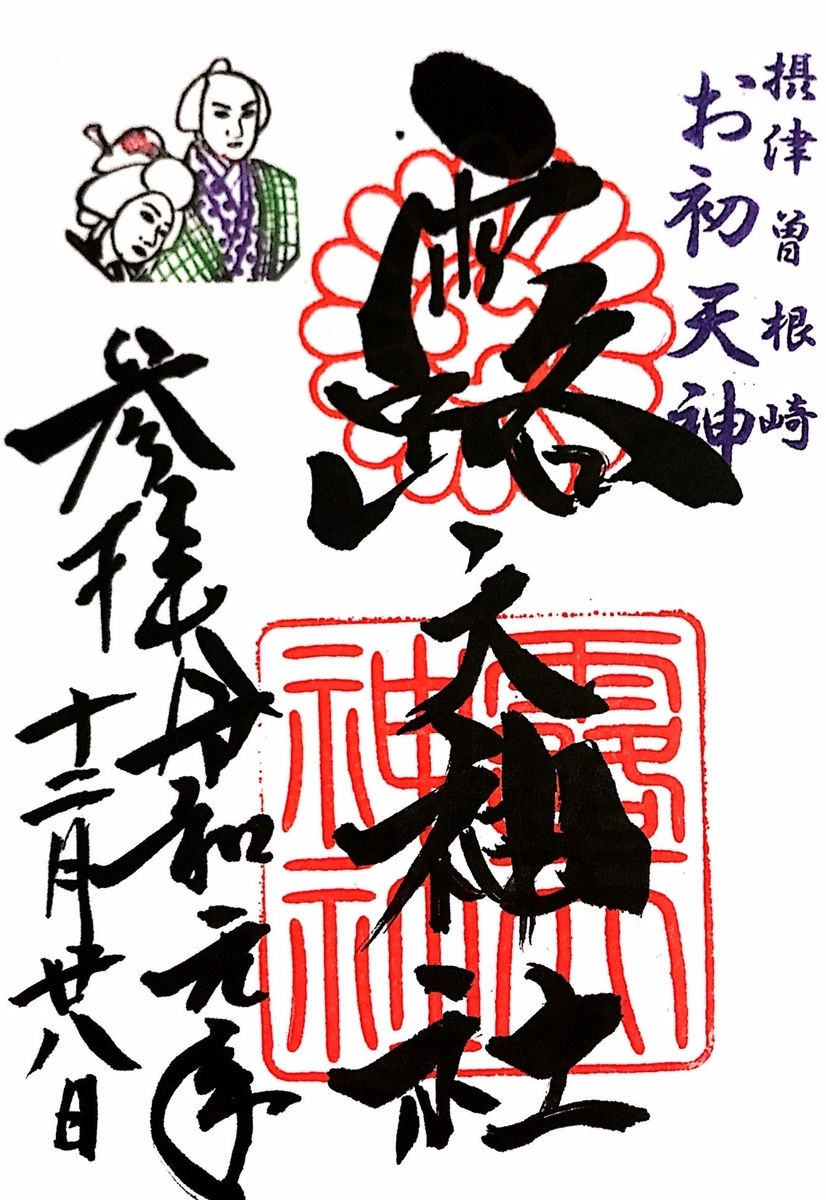 摂津曽根崎
お初天神
露天神社
露天
神社
参拝
令和元年
十二月廿八日